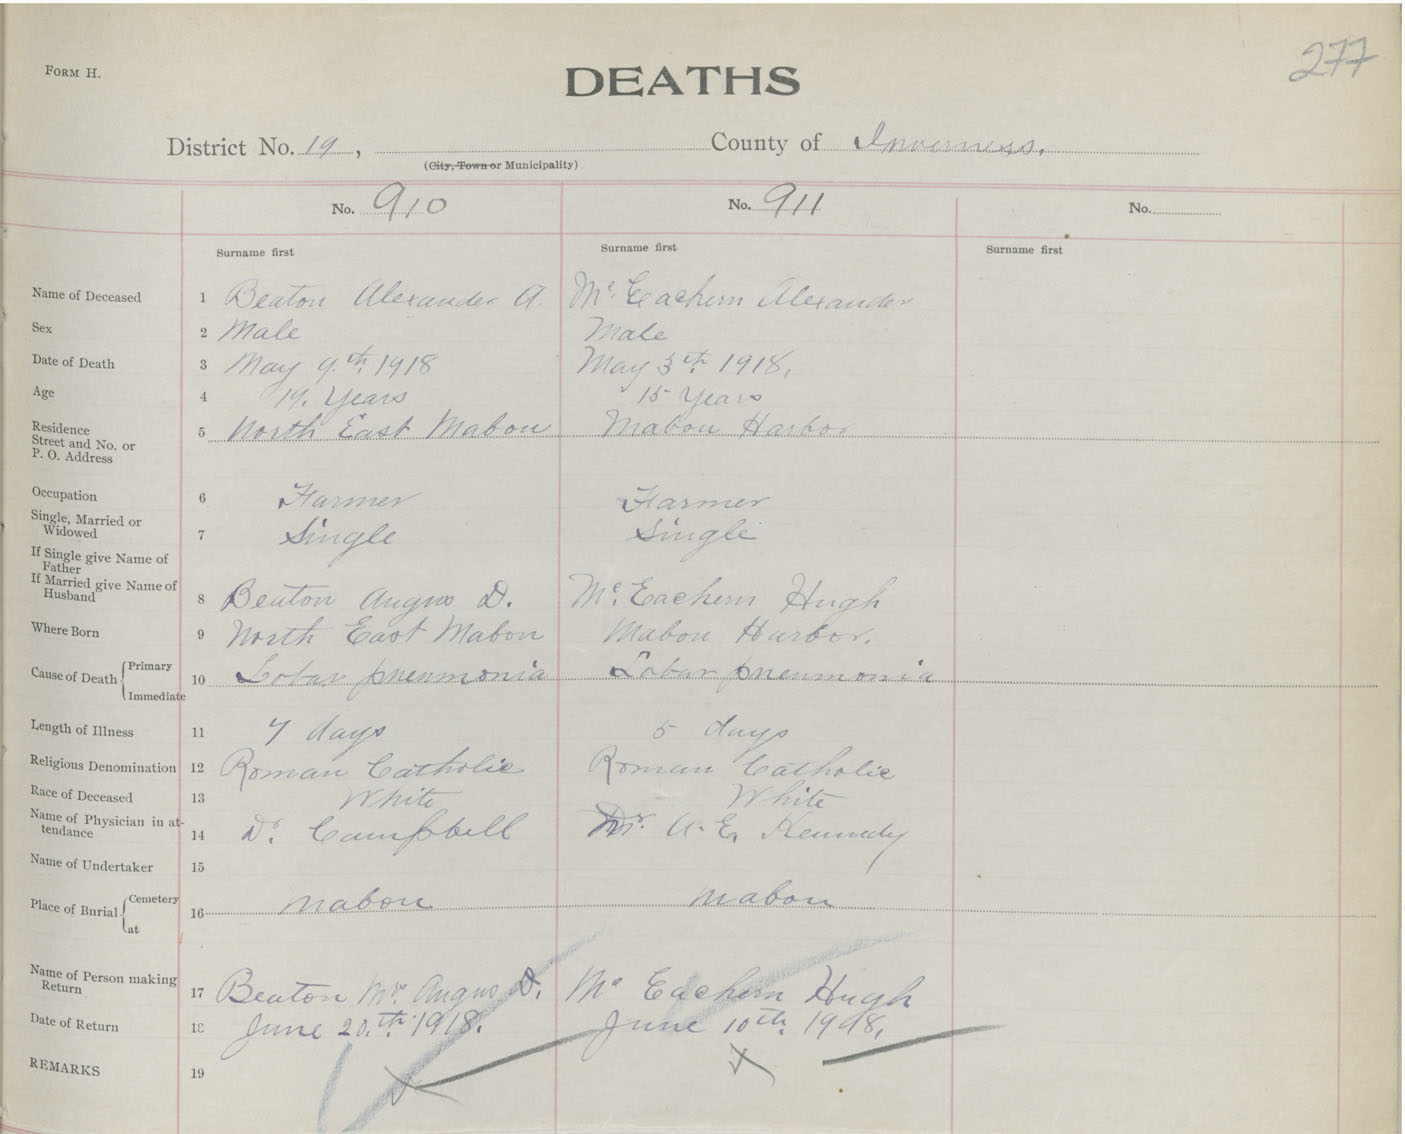 277
FORM H.
DEATHS
District No. 19, County of Inverness.
(City, Town or Municipality)
No. 910 No. 911 No.
Surname first Surname first Surname first
Name of Deceased 1 Beaton Alexander A. Mc. Eachern Alexander
Sex 2 Male Male
Date of Death 3 May 9th. 1918 May 3th. 1918.
Age 4 19. Years 15 Years
Residence
Street and No. or
P. O. Address 5 North East Mabou Mabou Harbor
Occupation 6 Farmer Farmer
Single, Married or
Widowed 7 Single Single
If Single give Name of
Father
If Married give Name of
Husband 8 Beaton Angus D. Mc. Eachern Hugh
Where Born 9 North East Mabou Mabou Harbor.
Cause of Death Primary
Immediate 10 Lobar pneumonia Lobar pneumonia
Length of Illness 11 7 days 5 days
Religious Denomination 12 Roman Catholic Roman Catholic
Race of Deceased 13 White White
Name of Physician in at-
tendance 14 Dr. Campbell Dr. A. E. Kennedy
Name of Undertaker 15
Place of Burial Cemetery
at 16 Mabou Mabou
Name of Person making
Return 17 Beaton Mr. Angus D. Mc Eachern Hugh
Date of Return 18 June 20.th. 1918. June 10th. 1918.
REMARKS 19